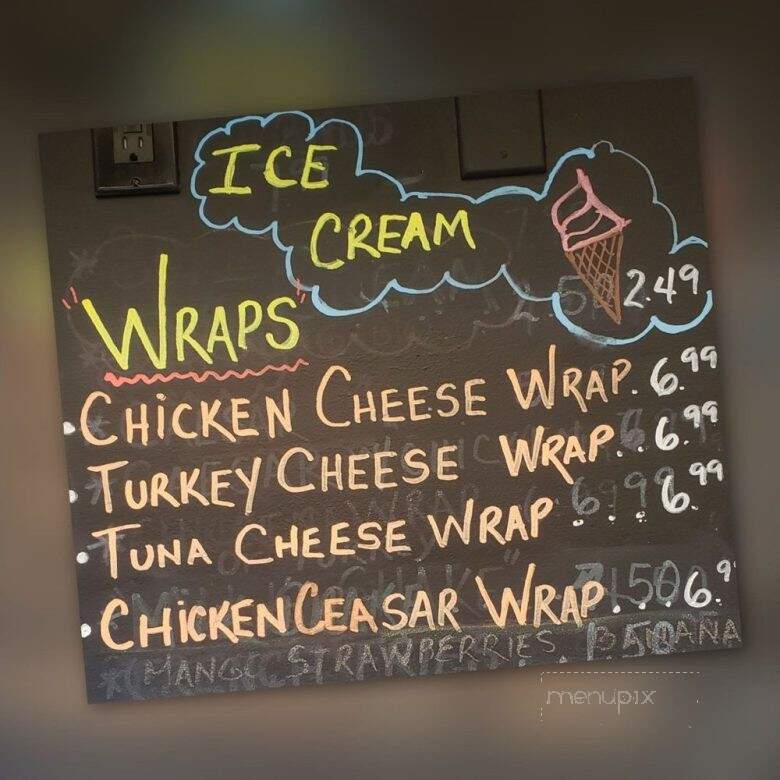 ICE
CREAM
2.49
"WRAPS"
• CHICKEN CHEESE WRAP. 6.99
• TURKEY CHEESE WRAP.. 6.99
• TUNA CHEESE WRAP ... 6.99
• CHICKEN CEASAR WRAP... 6.9
(MANGO STRAWBERRIES, BANANA
menupix